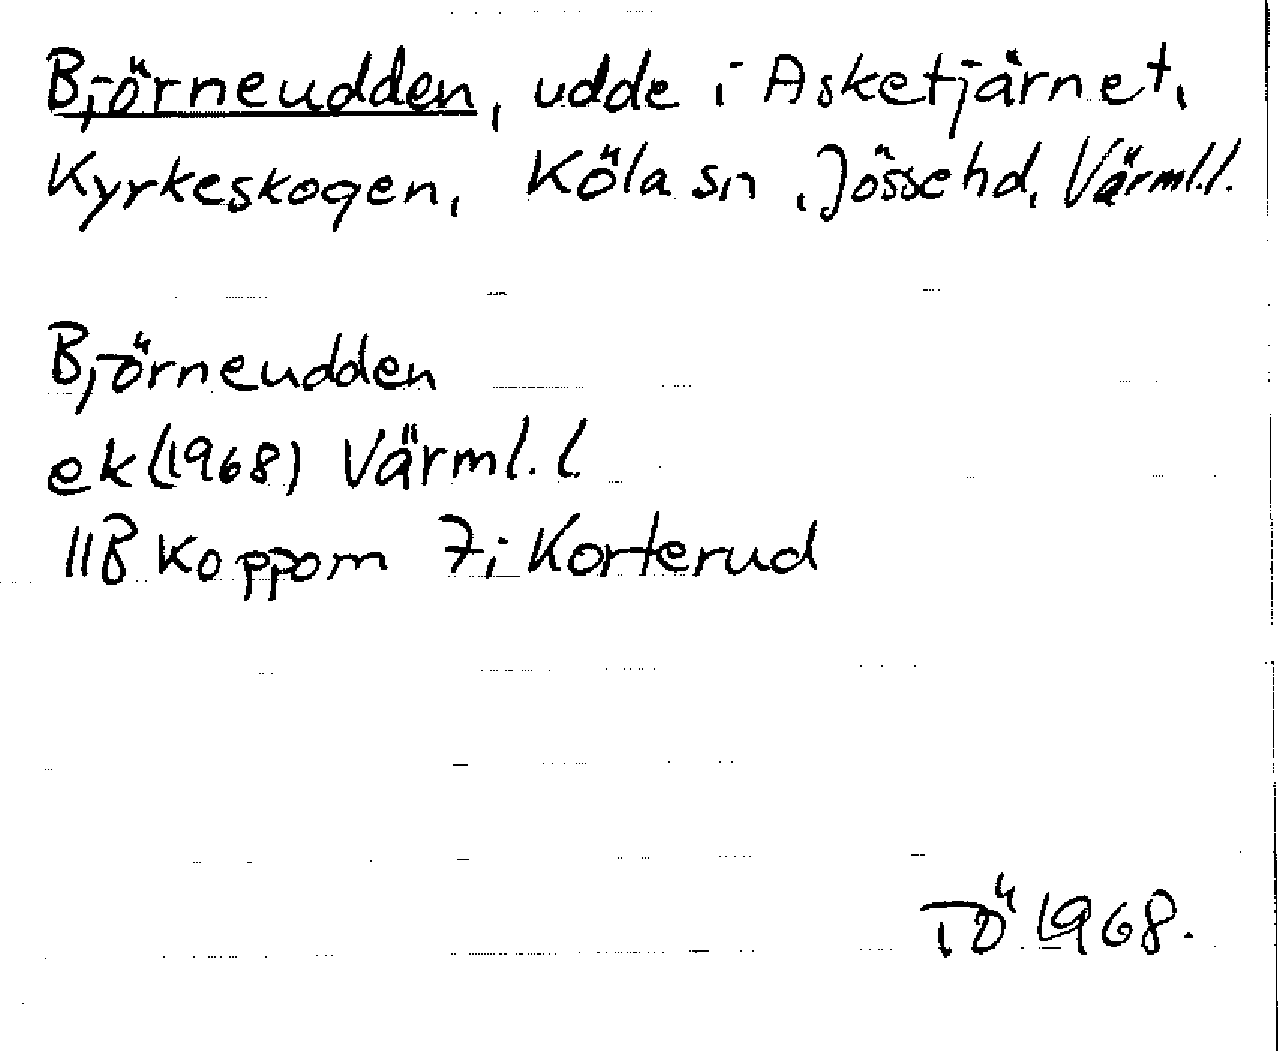 Björneudden, udde i Asketjärnet,
Kyrkeskogen, Köla sn, Jösse hd, Värml.l.
Björneudden
ek (1968) Värml.l
11B Koppom 7i Korterud
TÖ 1968.